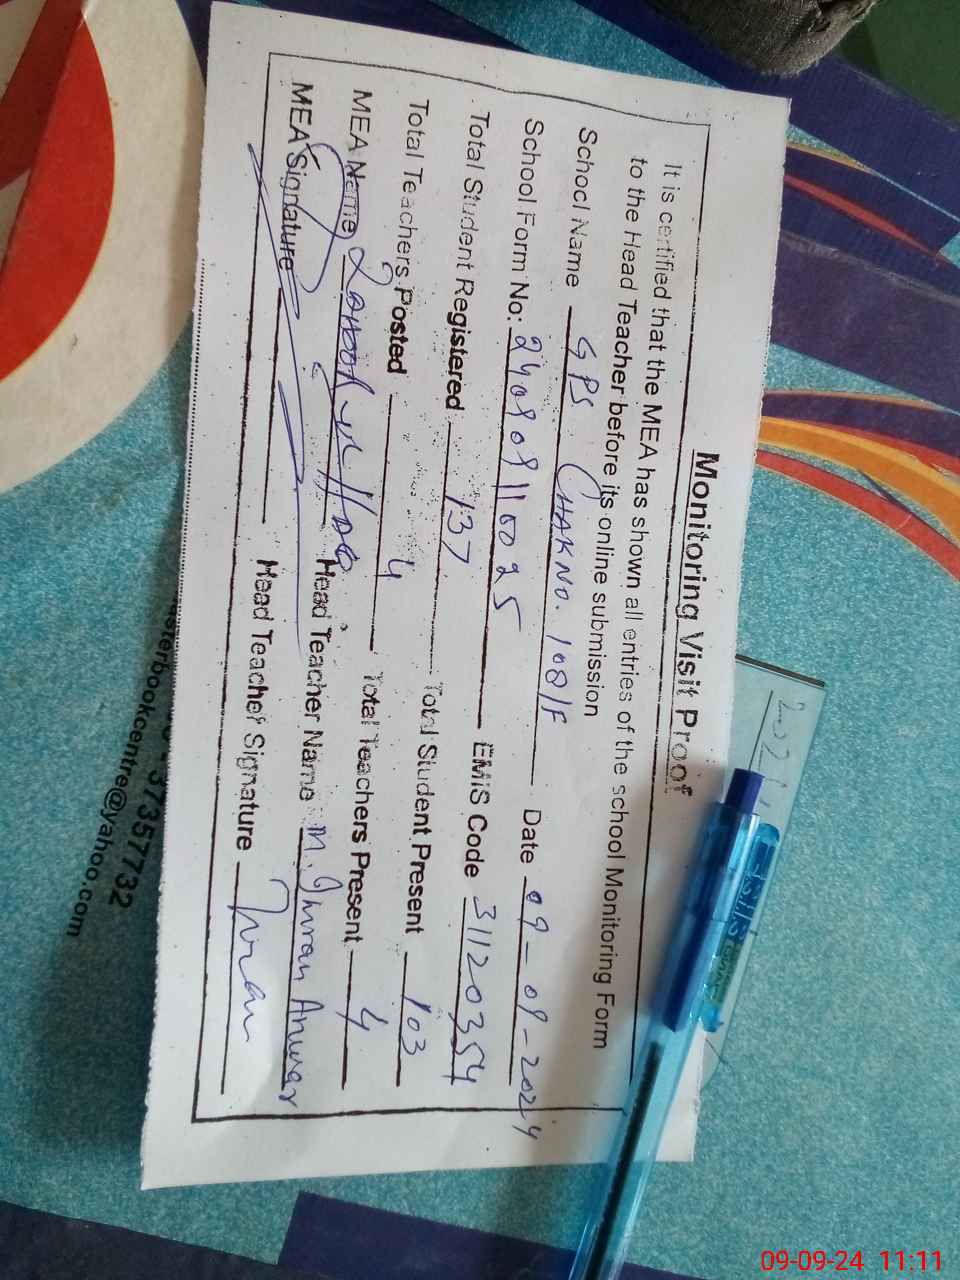 Monitoring Visit Proof
It is certified that the MEA has shown all entries of the school Monitoring Form
to the Head Teacher before its online submission
School Name GPS CHAK NO. 108/F Date 09-09-2024
School Form No: 240909110025 EMIS Code 31120354
Total Student Registered 137 Total Student Present 103
Total Teachers Posted 4 Total Teachers Present 4
MEA Name Head Teacher Name M. Imran Anwar
MEA Signature Head Teacher Signature Imran
37357732
sterbookcentre@yahoo.com
09-09-24 11:11